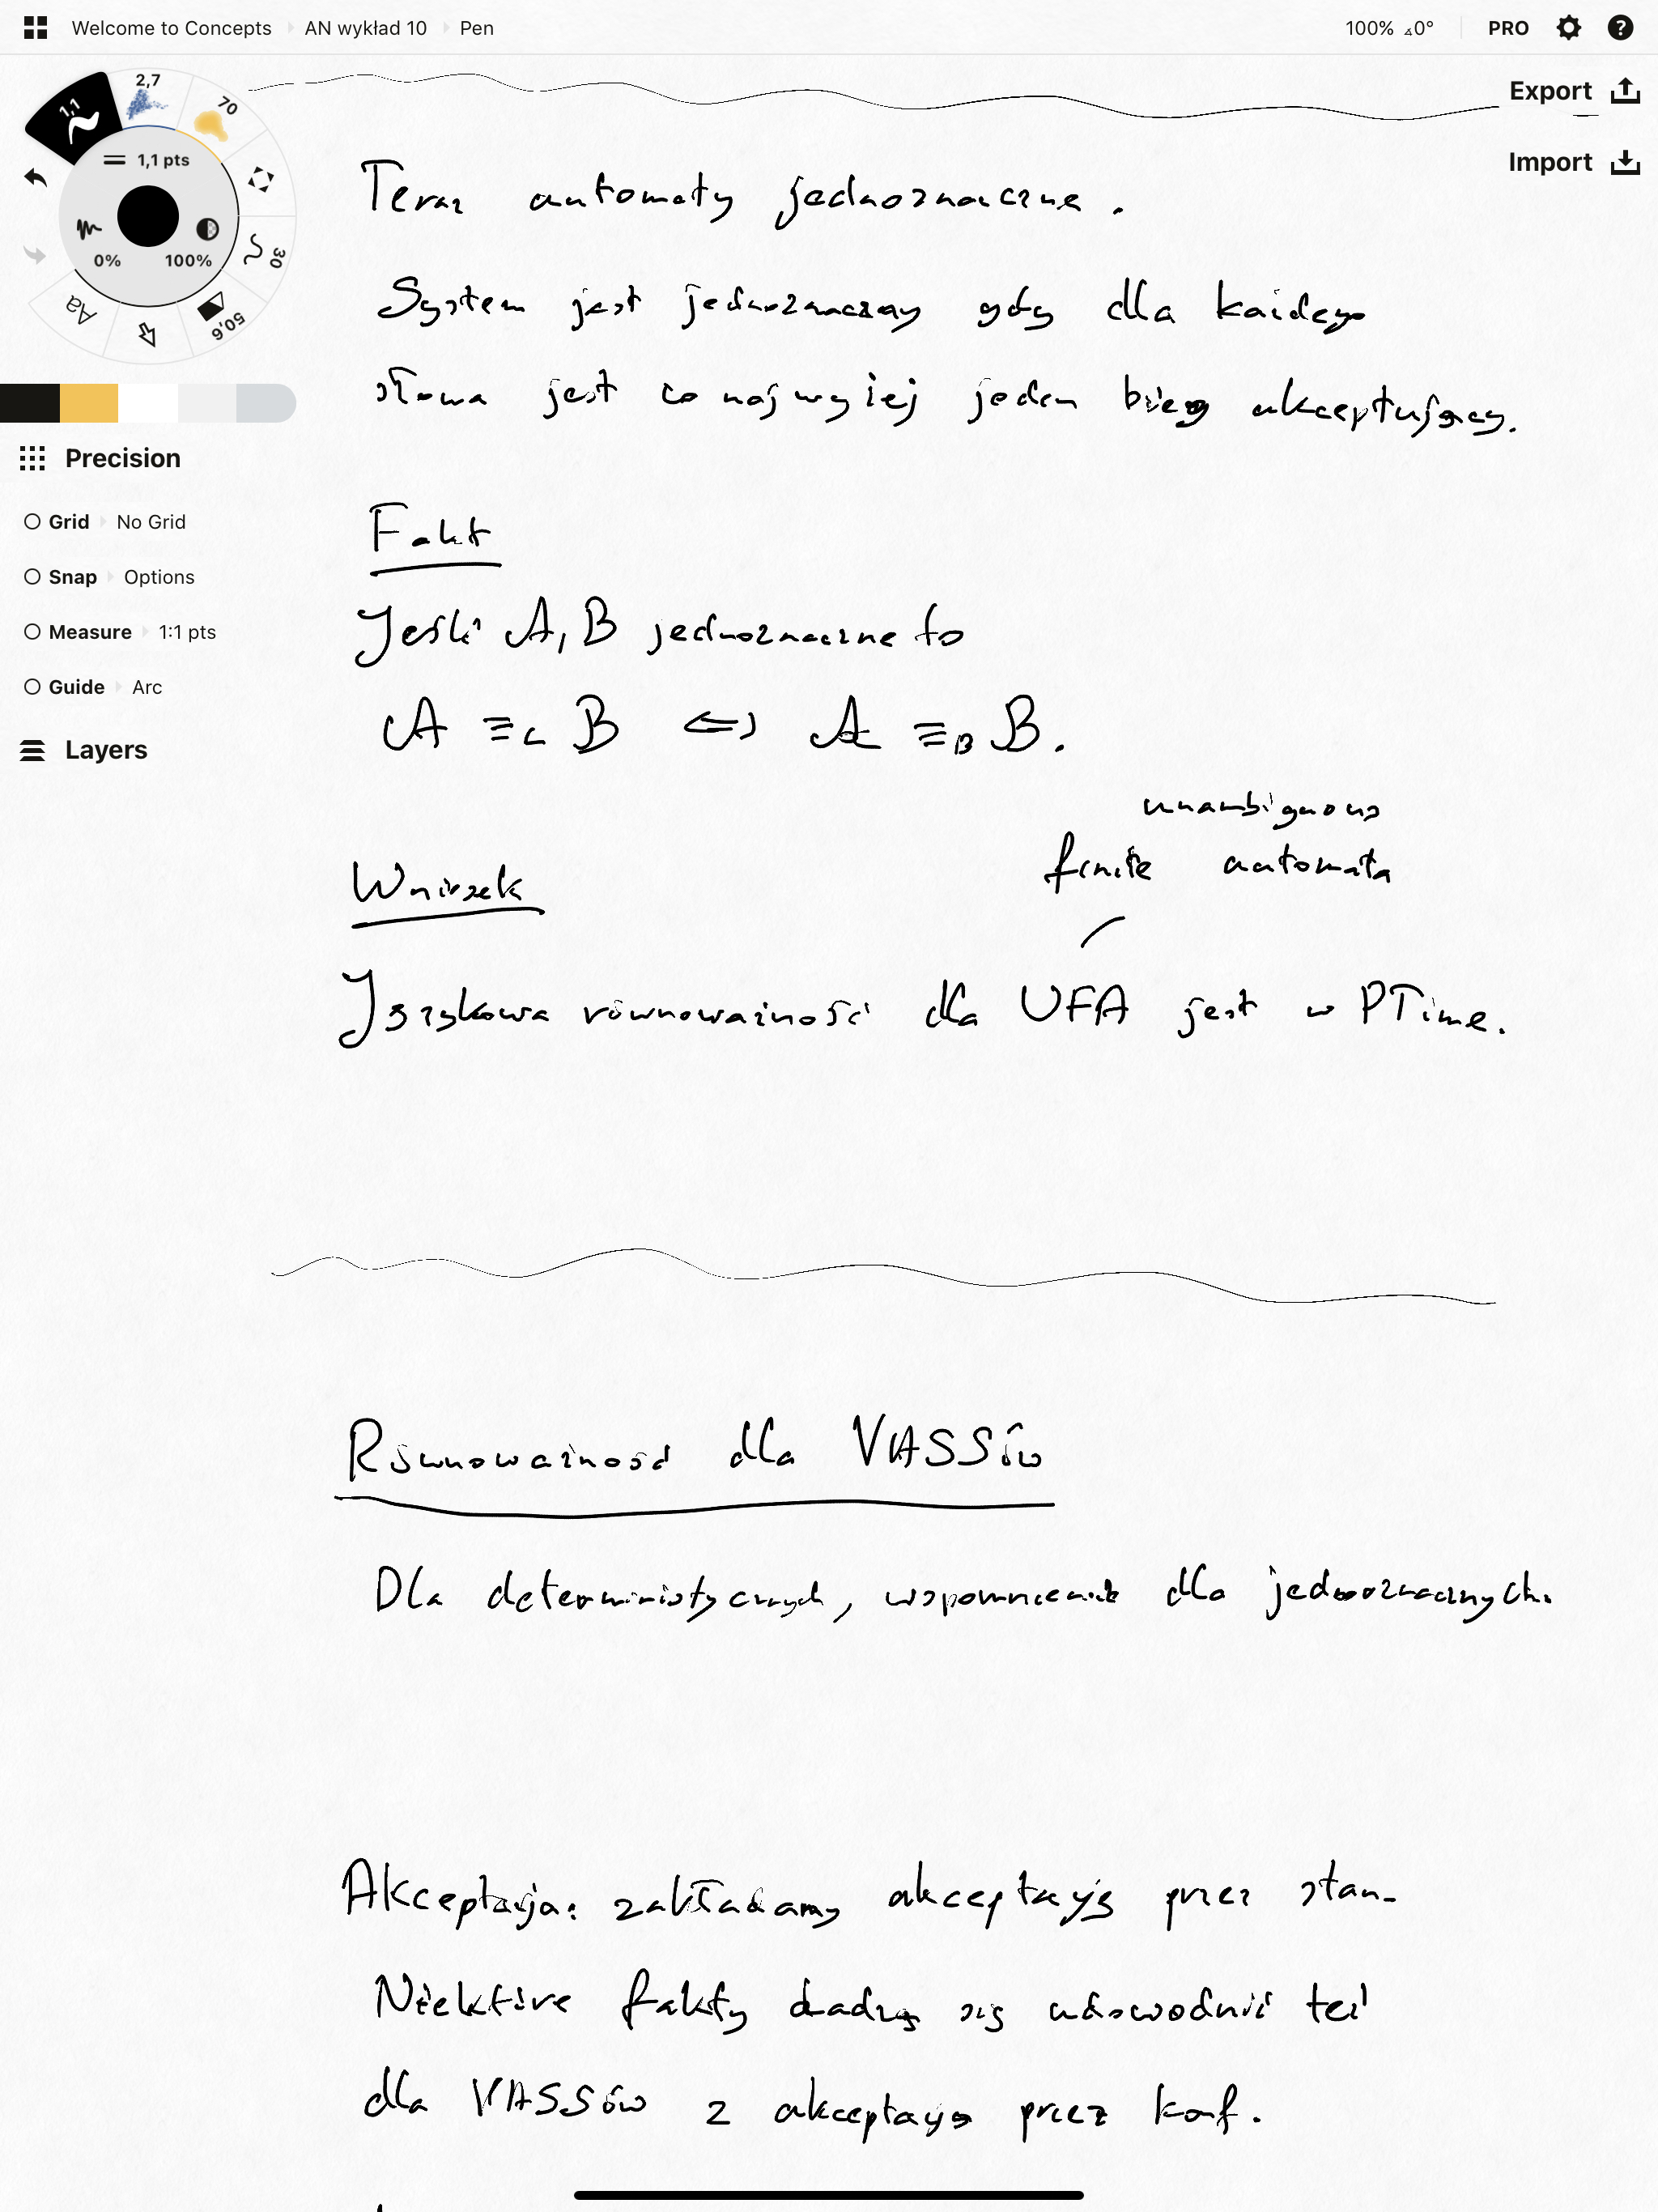 Welcome to Concepts AN wykład 10 Pen 100% 0° PRO
Export
Import
1,1
2,7
70
1,1 pts
0% 100%
30
50,6
Aa
Precision
Grid No Grid
Snap Options
Measure 1:1 pts
Guide Arc
Layers
Teraz automaty jednoznaczne.
System jest jednoznaczny gdy dla każdego
słowa jest co najwyżej jeden bieg akceptujący.
Fakt
Jeśli A, B jednoznaczne to
A ≡L B ⇔ A ≡B B.
unambiguous
finite automata
Wniosek
Językowa równoważność dla UFA jest w PTime.
Równoważność dla VASSów
Dla deterministycznych, wspomnienie dla jednoznacznych.
Akceptacja: zakładamy akceptację przez stan.
Niektóre fakty dadzą się udowodnić też
dla VASSów z akceptacją przez konf.